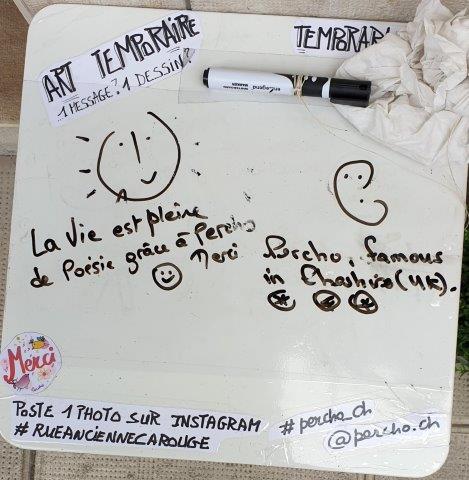 ART TEMPORAIRE
1 MESSAGE? 1 DESSIN?
TEMPORAR
La vie est pleine
de Poésie grâce à Percho
Merci
Percho, famous
in Cheshire (UK).
Merci
POSTE 1 PHOTO SUR INSTAGRAM
# RUEANCIENNECAROUGE
#percho_ch
@percho.ch